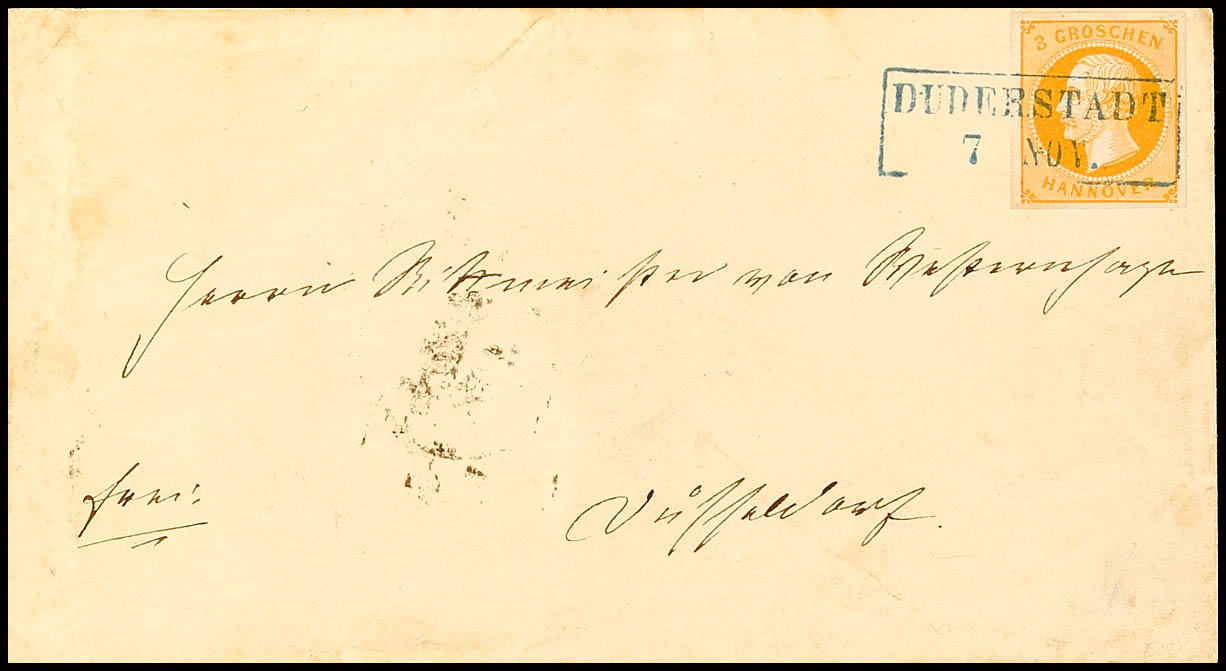 3 GROSCHEN
HANNOVER
DUDERSTADT
7 NOV.
Herrn Rittmeister von Westernhagen
frei:
Düsseldorf.